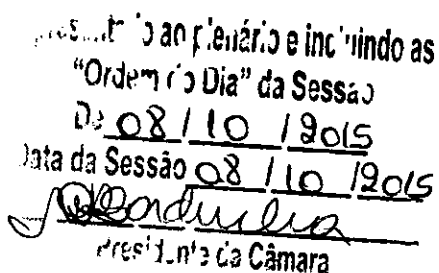 ao plenário e incluindo as
"Ordem do Dia" da Sessão
De 08 / 10 / 2015
Data da Sessão 08 / 10 / 2015
Presidente da Câmara